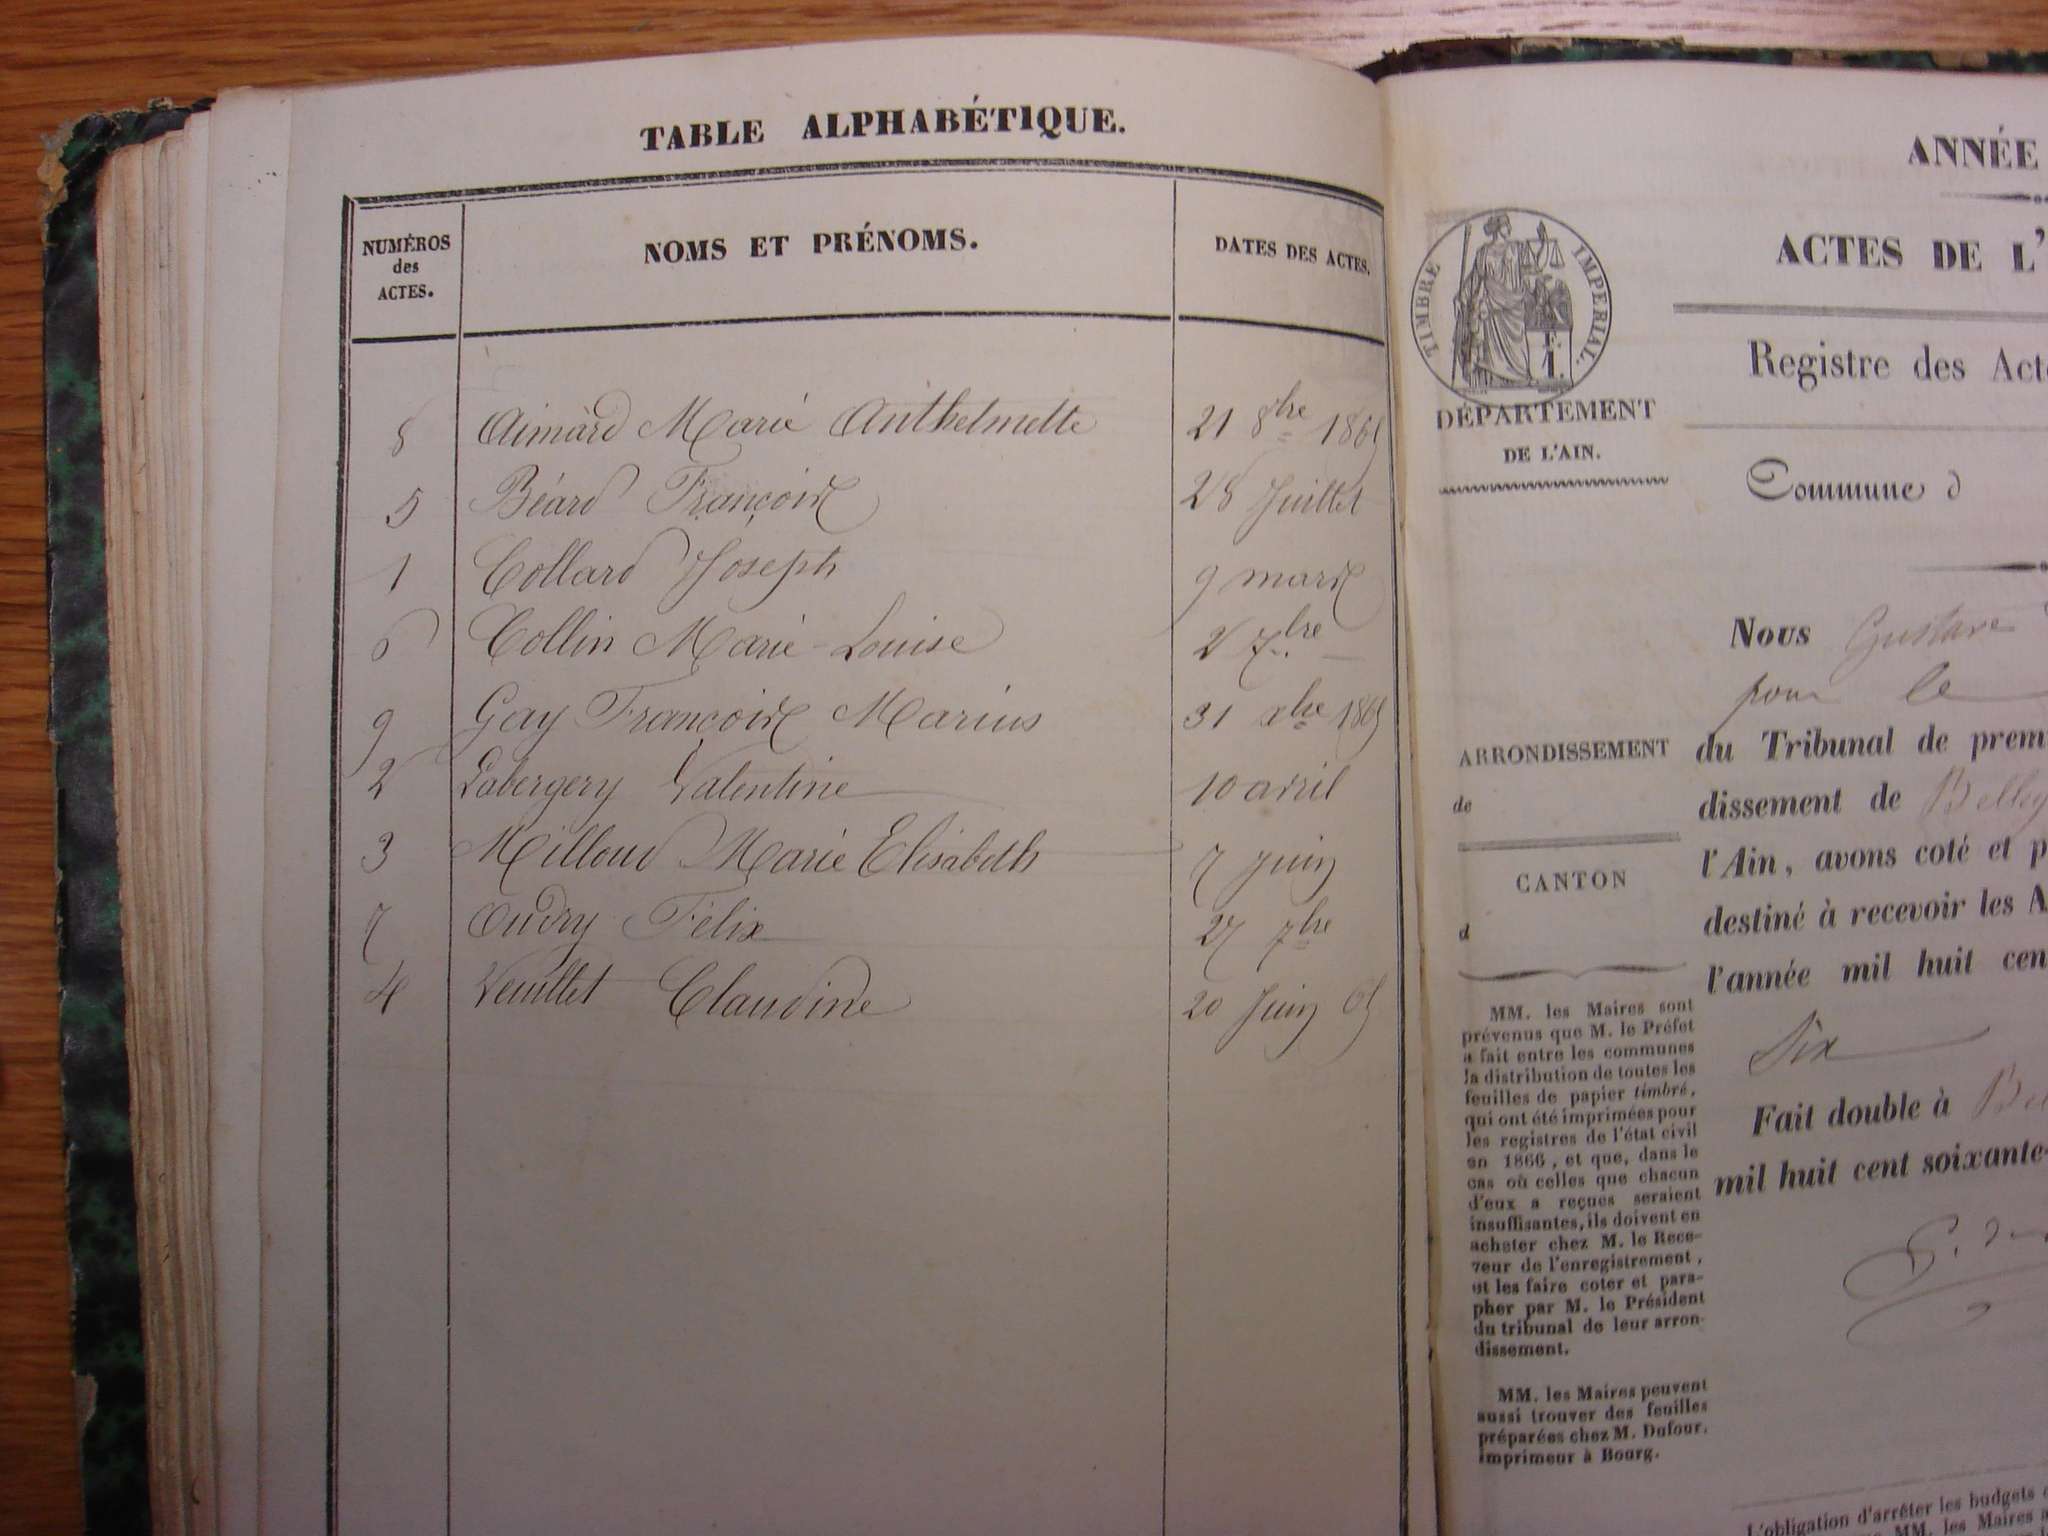 TABLE ALPHABÉTIQUE.
NUMÉROS des ACTES. NOMS ET PRÉNOMS. DATES DES ACTES.
8 Aimard Marie Anthelmette 21 8bre 1865
5 Béard François 28 Juillet
1 Collard Joseph 9 mars
6 Collin Marie Louise 2 7bre
9 Gay François Marius 31 xbre 1865
2 Labergery Valentine 10 avril
3 Milloud Marie Elisabeth 7 Juin
7 Oudry Felix 27 7bre
4 Veuillet Claudine 20 Juin 65
ANNÉE
TIMBRE IMPÉRIAL.
F.
1.
ACTES DE L'
Registre des Act
DÉPARTEMENT
DE L'AIN.
Commune d
Nous Gustave
pour le
ARRONDISSEMENT
de
CANTON
d
du Tribunal de prem
dissement de Belley
l'Ain, avons coté et p
destiné à recevoir les A
l'année mil huit cen
Six
Fait double à Bel
mil huit cent soixante-
MM. les Maires sont
prévenus que M. le Préfet
a fait entre les communes
la distribution de toutes les
feuilles de papier timbré,
qui ont été imprimées pour
les registres de l'état civil
en 1866, et que, dans le
cas où celles que chacun
d'eux a reçues seraient
insuffisantes, ils doivent en
acheter chez M. le Rece-
veur de l'enregistrement,
et les faire coter et para-
pher par M. le Président
du tribunal de leur arron-
dissement.
MM. les Maires peuvent
aussi trouver des feuilles
préparées chez M. Dufour,
imprimeur à Bourg.
L'obligation d'arrêter les budgets
MM. les Maires